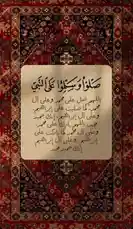 صلوا وسلموا على النبي
اللهم صل على محمد وعلى آل
محمد كما صليت على إبراهيم
وعلى آل إبراهيم إنك حميد
مجيد اللهم بارك على محمد
وعلى آل محمد كما باركت على
إبراهيم وعلى آل إبراهيم
إنك حميد مجيد